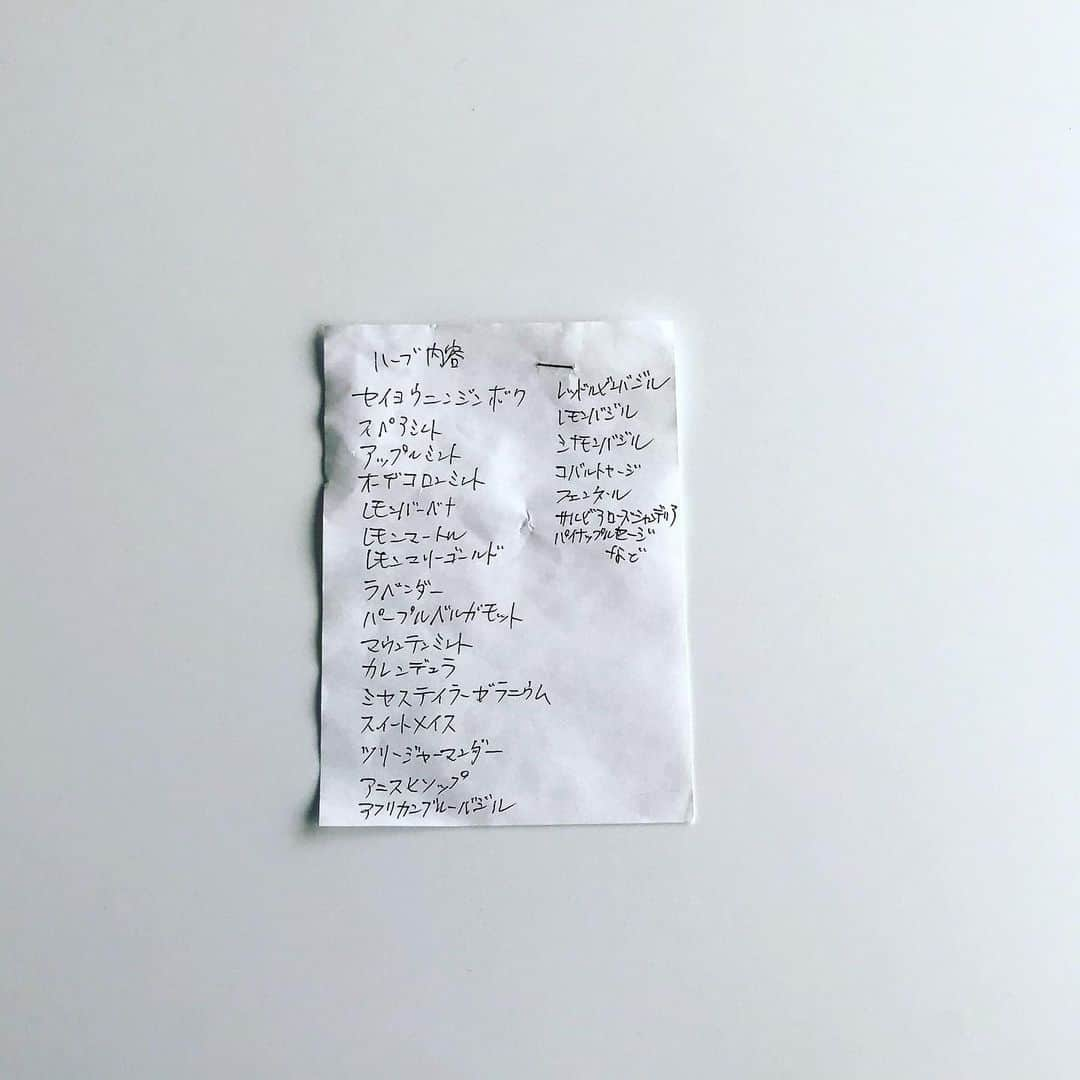 ハーブ内容
セイヨウニンジンボク
スペアミント
アップルミント
オーデコロンミント
レモンバーベナ
レモンマートル
レモンマリーゴールド
ラベンダー
パープルベルガモット
マウンテンミント
カレンデュラ
ミセステイラーゼラニウム
スイートメイス
ツリージャーマンダー
アニスヒソップ
アフリカンブルーバジル
レッドルビンバジル
レモンバジル
シナモンバジル
コバルトセージ
フェンネル
サルビアローズシャンデリア
パイナップルセージ
など